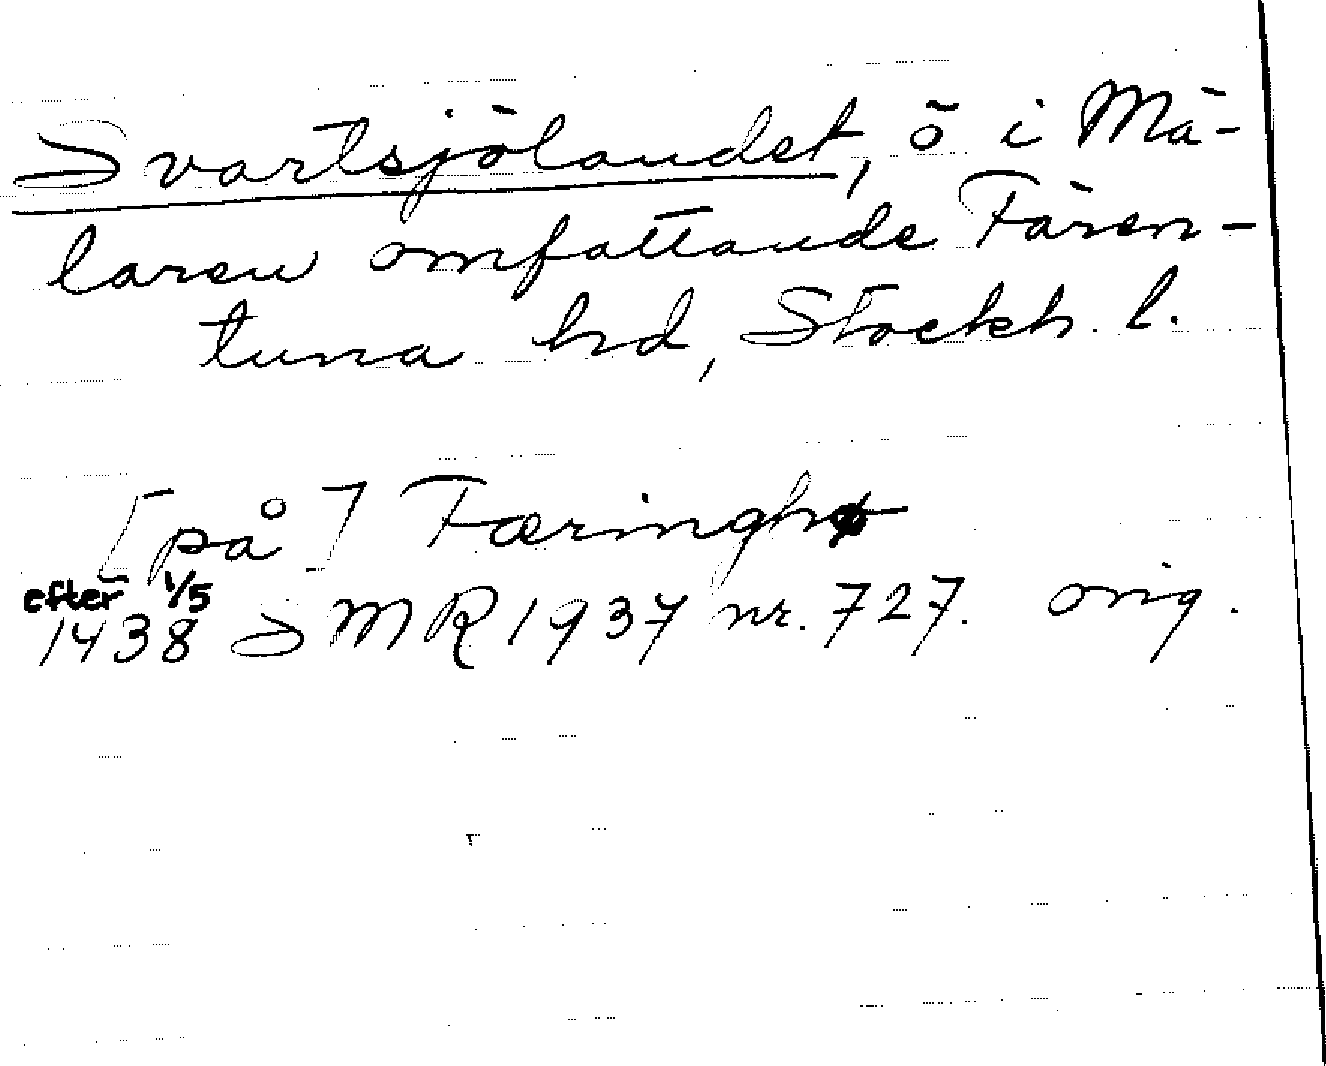 Svartsjölandet, ö i Mä-
laren omfattande Fären-
tuna hd, Stockh. l.
[på] Færinghø
efter 1/5
1438 SMR 1937 nr. 727. orig.